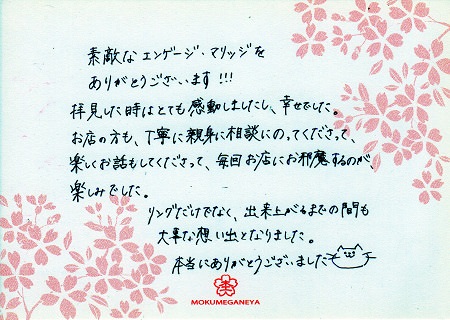 素敵なエンゲージ・マリッジを
ありがとうございます!!!
拝見した時はとても感動しましたし、幸せでした。
お店の方も、丁寧に親身に相談にのってくださって、
楽しくお話もしてくださって、毎回お店にお邪魔するのが、
楽しみでした。
リングだけでなく、出来上がるまでの間も
大事な想い出となりました。
本当にありがとうございました
MOKUMEGANEYA